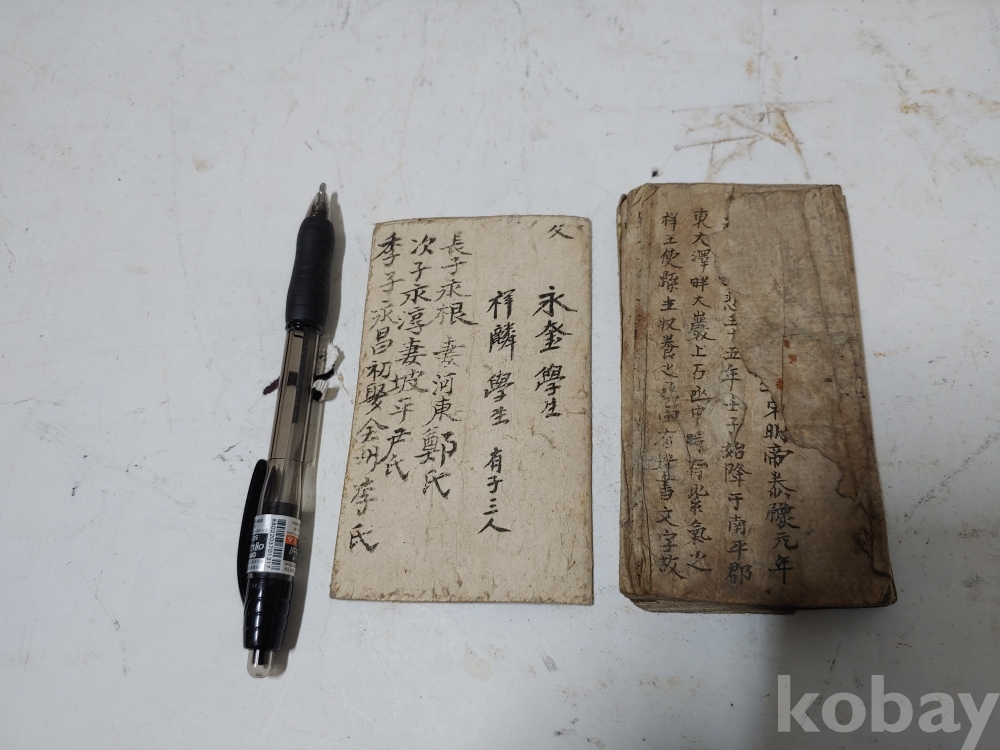 父
永奎 學生
祥麟 學生 有子三人
長子永根 妻河東鄭氏
次子永淳妻坡平尹氏
季子永昌初娶全州李氏
明帝泰 元年
五年壬子始降于南平郡
東大澤畔大巖上石 中時有紫氣之
祥工使縣主収養之 有 書文字故
kobay